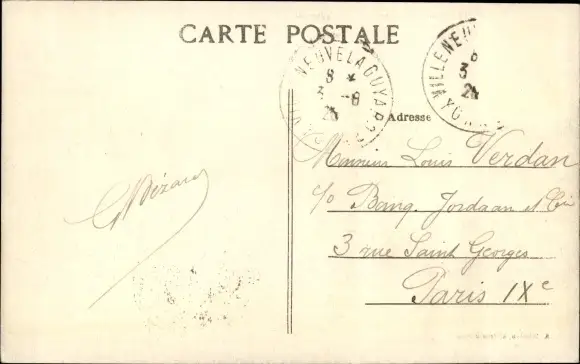 CARTE POSTALE
NEUVELAGUYARD
8 *
3 -8
VILLENEUV
8
3
YON
Adresse
Monsieur Louis Verdan
c/o Banq. Jordaan et Cie
3 rue Saint Georges
Paris IXe